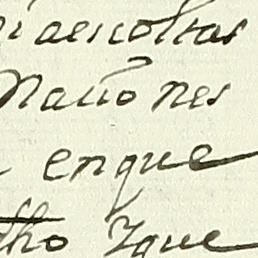 aescoltas
Naciones
enque
dho Yque